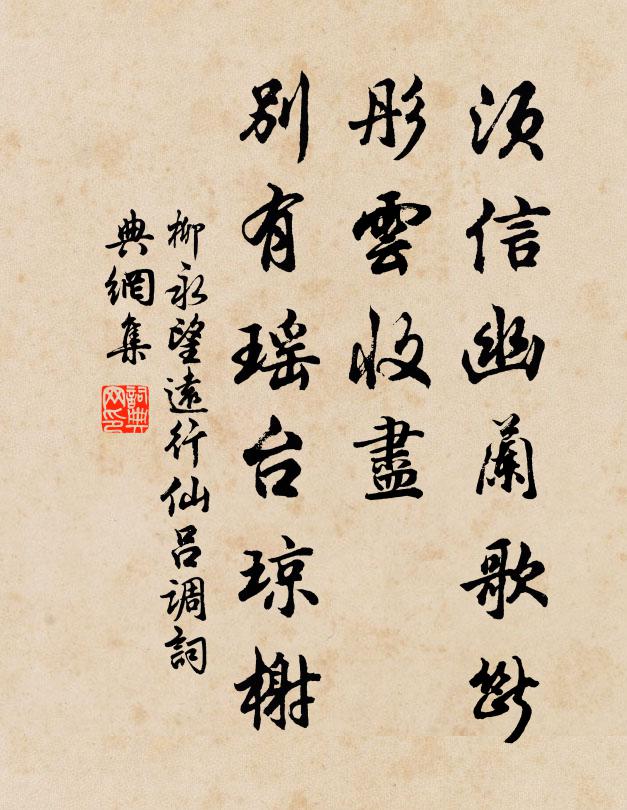 須信幽蘭歌斷
彤雲收盡
別有瑶台琼榭
柳永望遠行仙吕調詞
典網集
詞典网印